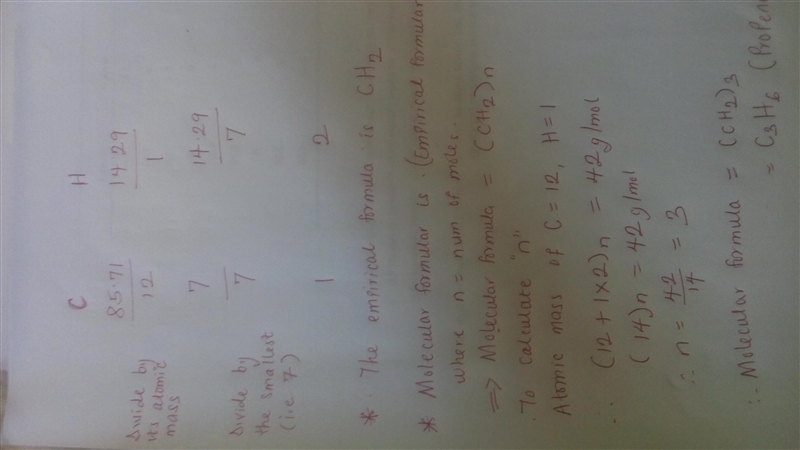 C H
Divide by 85.71 14.29
its atomic 12 1
mass
7 14.29
Divide by 7 7
the smallest
(i.e 7) 1 2
* The empirical formula is CH2
* Molecular formular is (Empirical formular
where n = num of moles.
=> Molecular formula = (CH2)n
To calculate "n"
Atomic mass of C = 12, H = 1
∴ (12 + 1 x 2)n = 42g/mol
(14)n = 42g/mol
∴ n = 42/14 = 3
∴ Molecular formula = (CH2)3
= C3H6 (Propen